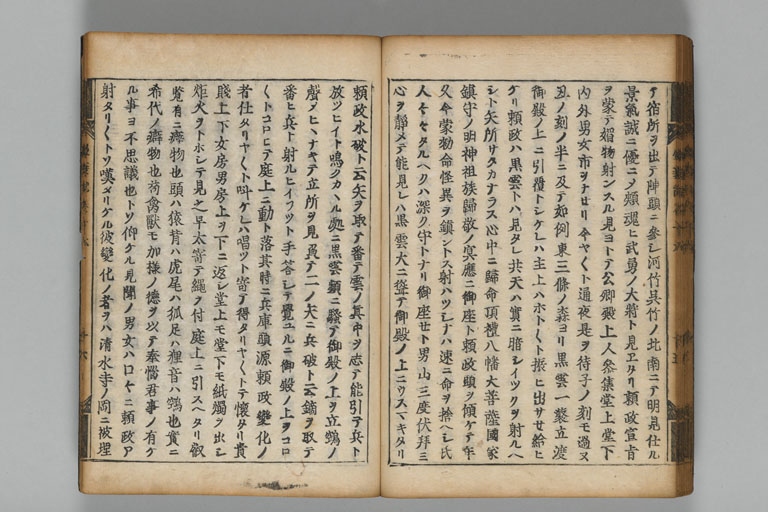 テ宿所ヲ出テ陣頭ニ参シ河竹呉竹ノ北南ニテ明見仕ル
景氣誠ニ優ニメ頬魂ヒ武勇ノ大将ト見エタリ頼政宣旨
ヲ蒙テ媚物射ンスル見ヨトテ公卿殿上人参集堂上堂下
内外男女市ヲナセリ今ヤ〱ト通夜是ヲ待子ノ刻モ過又
丑ノ刻ノ半ニ及テ如例東三條ノ森ヨリ黒雲一聚立渡
御殿ノ上ニ引覆トシケレハ主上ハホト〱ト振ヒ出サセ給ヒ
ケリ頼政ハ黒雲トハ見タレ共天ハ實ニ暗シイツクヲ射ルヘ
シト矢所サタカナラス心中ニ歸命頂禮八幡大菩薩國家
鎮守ノ明神祖族歸敬ノ冥應ニ御座ト頼政頭ヲ傾ケテ年
久今蒙勅命怪異ヲ鎮ントス射ハツシナハ速ニ命ヲ捨ヘシ氏
人タルヘクハ深ク守トナリ御座セト男山三度伏拜ミ
心ヲ靜メテ能見レハ黒雲大ニ聳テ御殿ノ上ニウスマキタリ
頼政水破ト云矢ヲ取テ番テ雲ノ眞中ヲ志テ能引テ兵ト
放ツヒイト鳴クカヘル處ニ黒雲頻ニ騒テ御殿ノ上ヲ立鵼ノ
聲メヒヽナキテ立所ヲ見負テ二ノ矢ニ兵破ト云鏑ヲ取テ
番ヒ兵ト射ルヒイフツト手答シテ覺ユルニ御殿ノ上ヲコロ
〱トコロヒテ庭上ニ動ト落其時ニ兵庫頭源頼政變化ノ
者仕タリヤ〱ト叫ケレハ唱ツト寄テ得タリヤ〱トテ懐タリ貴
賤上下女房男房上ヲ下ニ返シ堂上モ堂下モ紙燭ヲ出シ
炬火ヲトホシテ見之早太寄テ縄ヲ付庭上ニ引スヘタリ叡
覧有ニ癖物也頭ハ猿背ハ虎尾ハ狐足ハ狸音ハ鵼也實ニ
希代ノ癖物也苟禽獣モ加様ノ徳ヲ以テ奉悩君事ノ有ケ
ル事ヨ不思議也トソ仰ケル見聞ノ男女ハ口々ニ頼政ア
射タリ〱トソ嘆メリケル彼變化ノ者ヲハ清水寺ノ岡ニ被埋